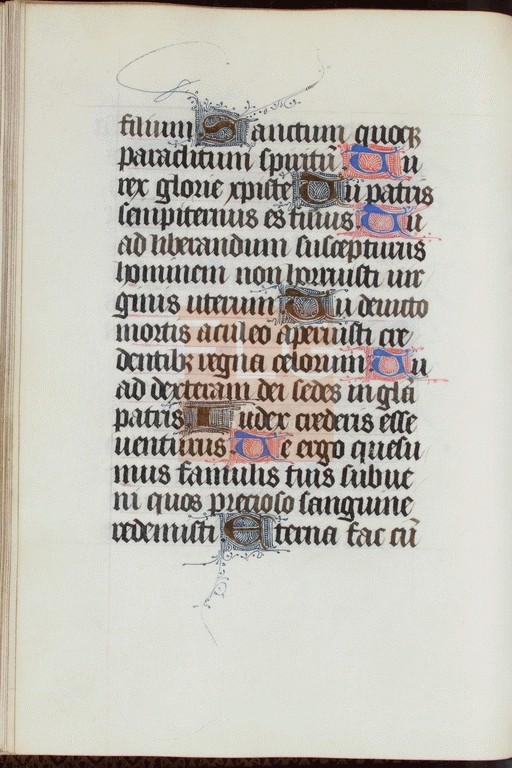 filium Sanctum quoqꝫ
paraclitum spiritū Tu
rex glorie xpiste Tu patris
sempiternus es filius Tu
ad liberandum suscepturus
hominem non horruisti uir
ginis uterum Tu deuicto
mortis aculeo aperuisti cre
dentibꝫ regna celorum Tu
ad dexteram dei sedes in glīa
patris Iudex crederis esse
uenturus Te ergo quesu
mus famulis tuis subue
ni quos precioso sanguine
redemisti Eterna fac cū